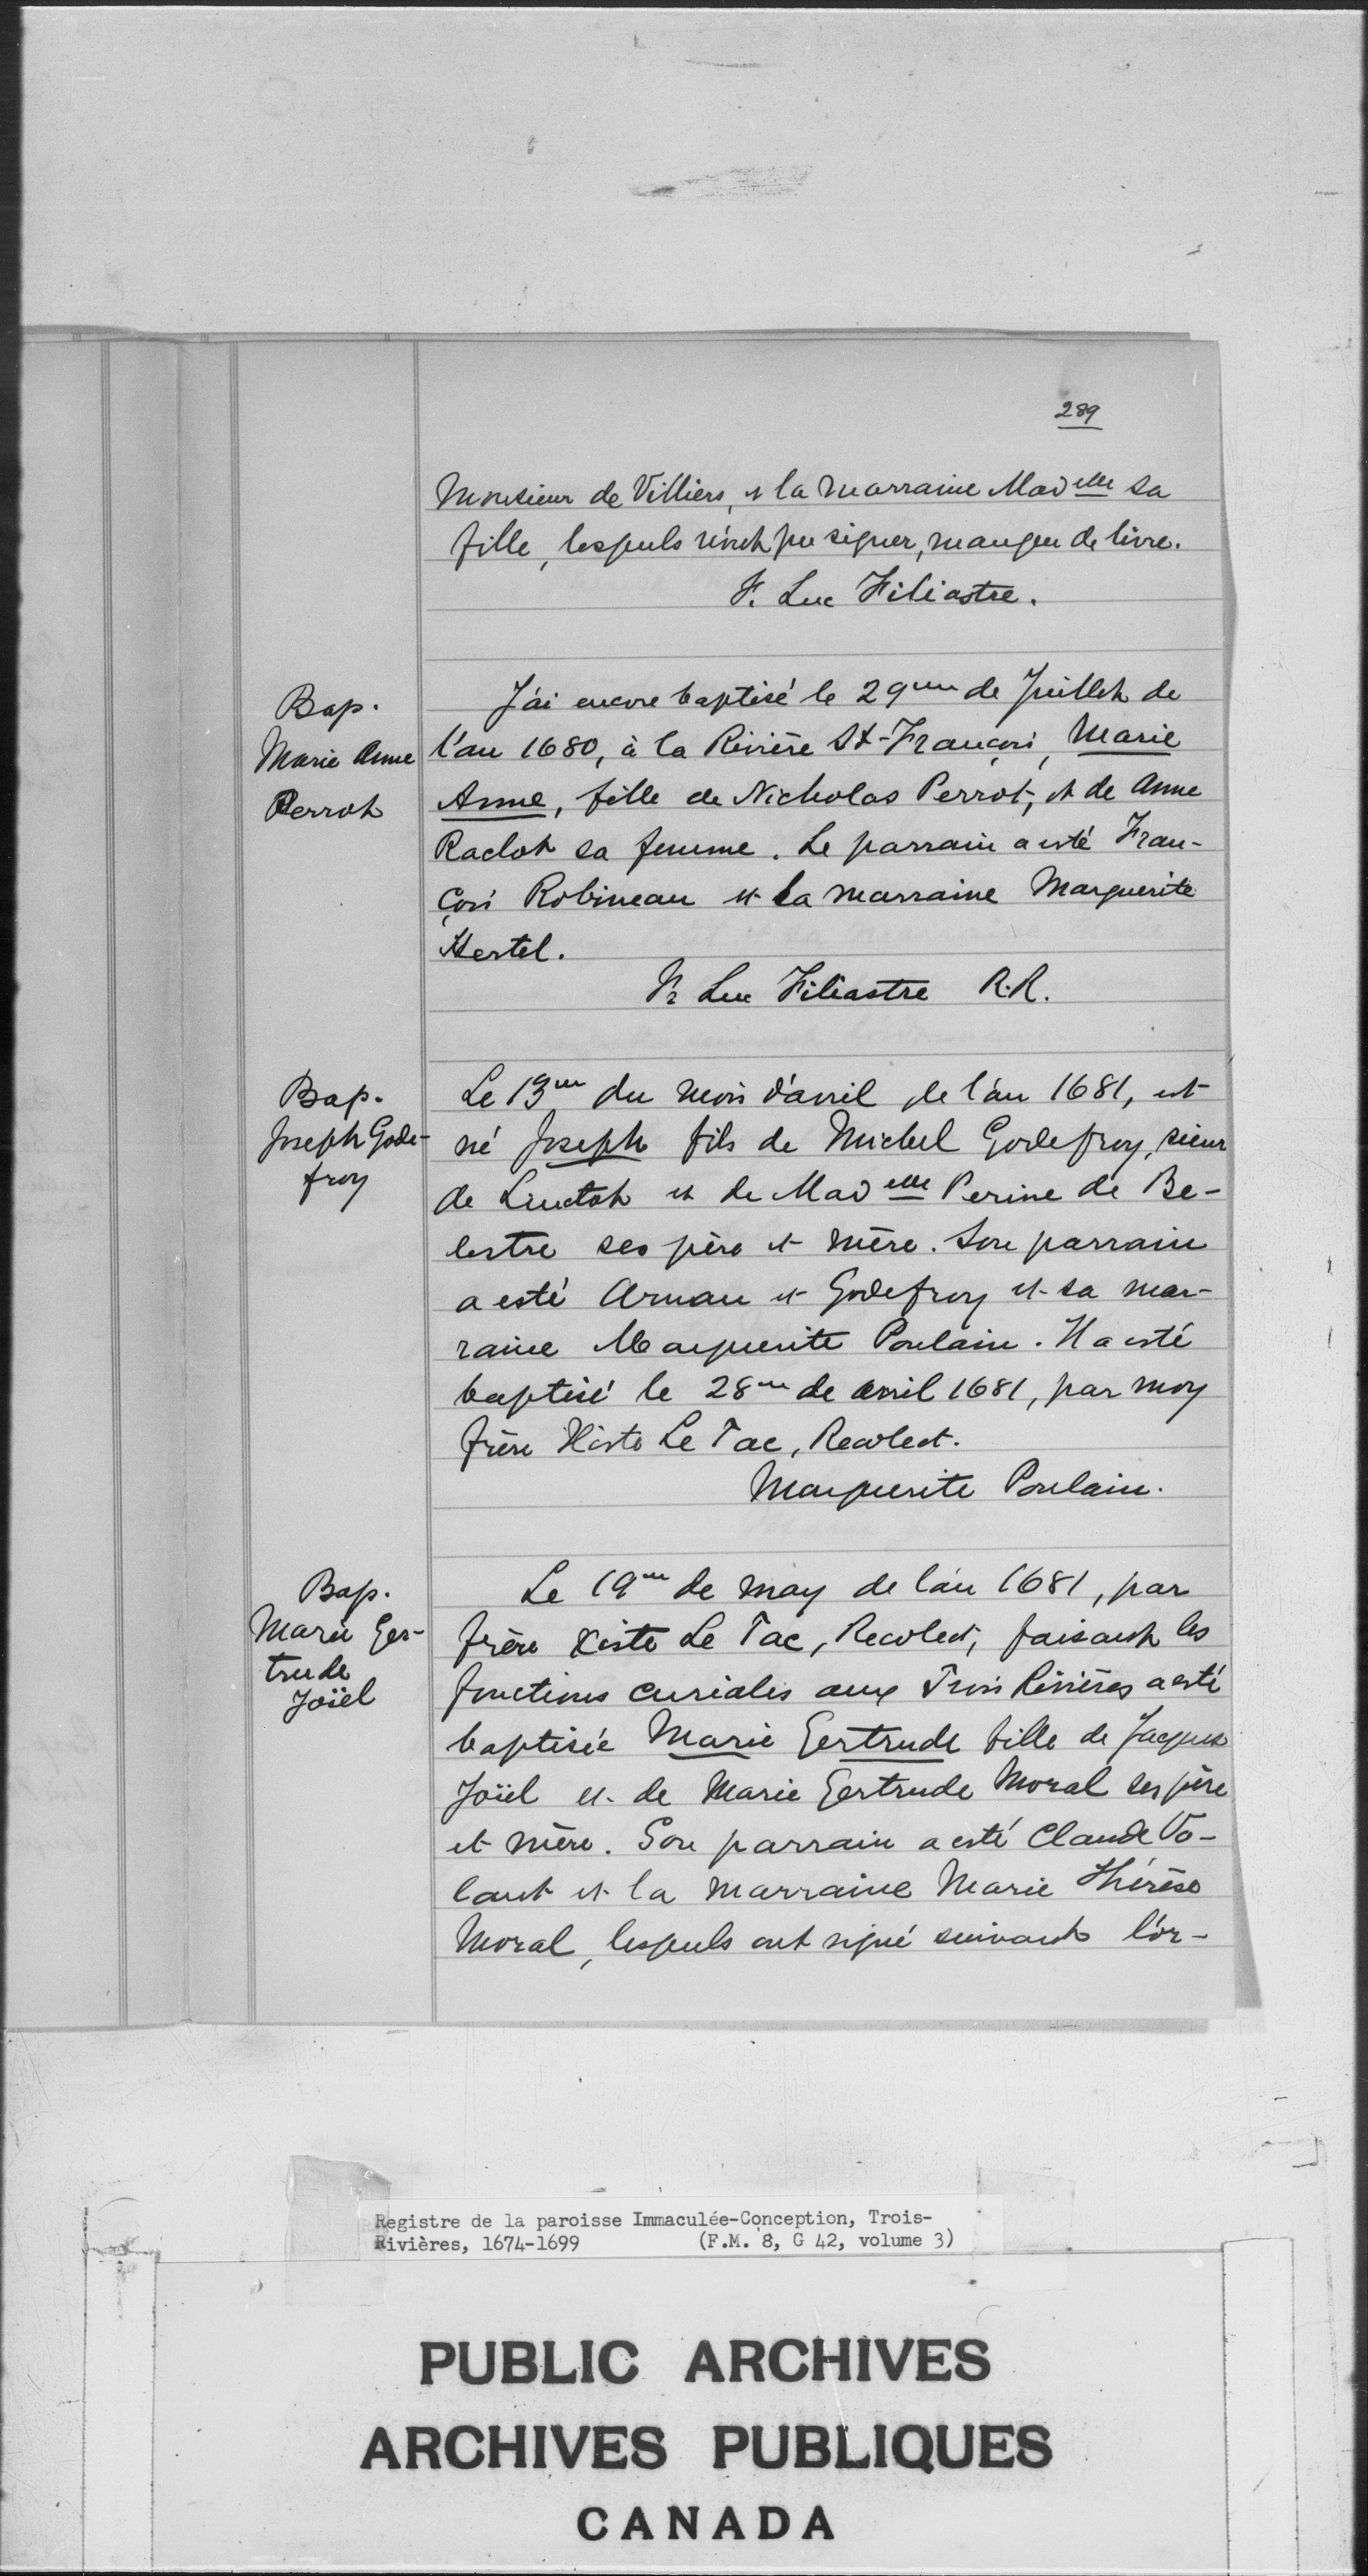 289
Monsieur de Villiers, et la marraine Mad elle sa
fille, lesquels n'ont pu signer, manque de livre.
F. Luc Filiastre.
Bap.
Marie Anne
Perrot
J'ai encore baptisé le 29me de Juillet de
l'an 1680, à la Rivière St-François, Marie
Anne, fille de Nicholas Perrot, et de Anne
Raclot sa femme. Le parrain a esté Fran-
çois Robineau et la marraine Marguerite
Hertel.
Fr Luc Filiastre R.R.
Bap.
Joseph Gode-
froy
Le 13me du mois d'avril de l'an 1681, est
né Joseph fils de Michel Godefroy, sieur
de Linctot et de Mad elle Perine de Be-
lestre ses père et mère. Son parrain
a esté Aman et Godefroy et sa mar-
raine Marguerite Poulain. Il a esté
baptisé le 28me de avril 1681, par moy
frère Xiste Le Tac, Recolect.
Marguerite Poulain.
Bap.
Marie Ger-
trude
Joiel
Le 19me de may de l'an 1681, par
frère Xiste Le Tac, Recolect, faisant les
fonctions curiales aux Trois Rivières a esté
baptisée Marie Gertrude fille de Jacques
Joiel et de Marie Gertrude Moral ses père
et mère. Son parrain a esté Claude Vo-
lant et la marraine Marie Thérèse
Moral, lesquels ont signé suivant l'or-
Registre de la paroisse Immaculée-Conception, Trois-
Rivières, 1674-1699 (F.M. 8, G 42, volume 3)
PUBLIC ARCHIVES
ARCHIVES PUBLIQUES
CANADA